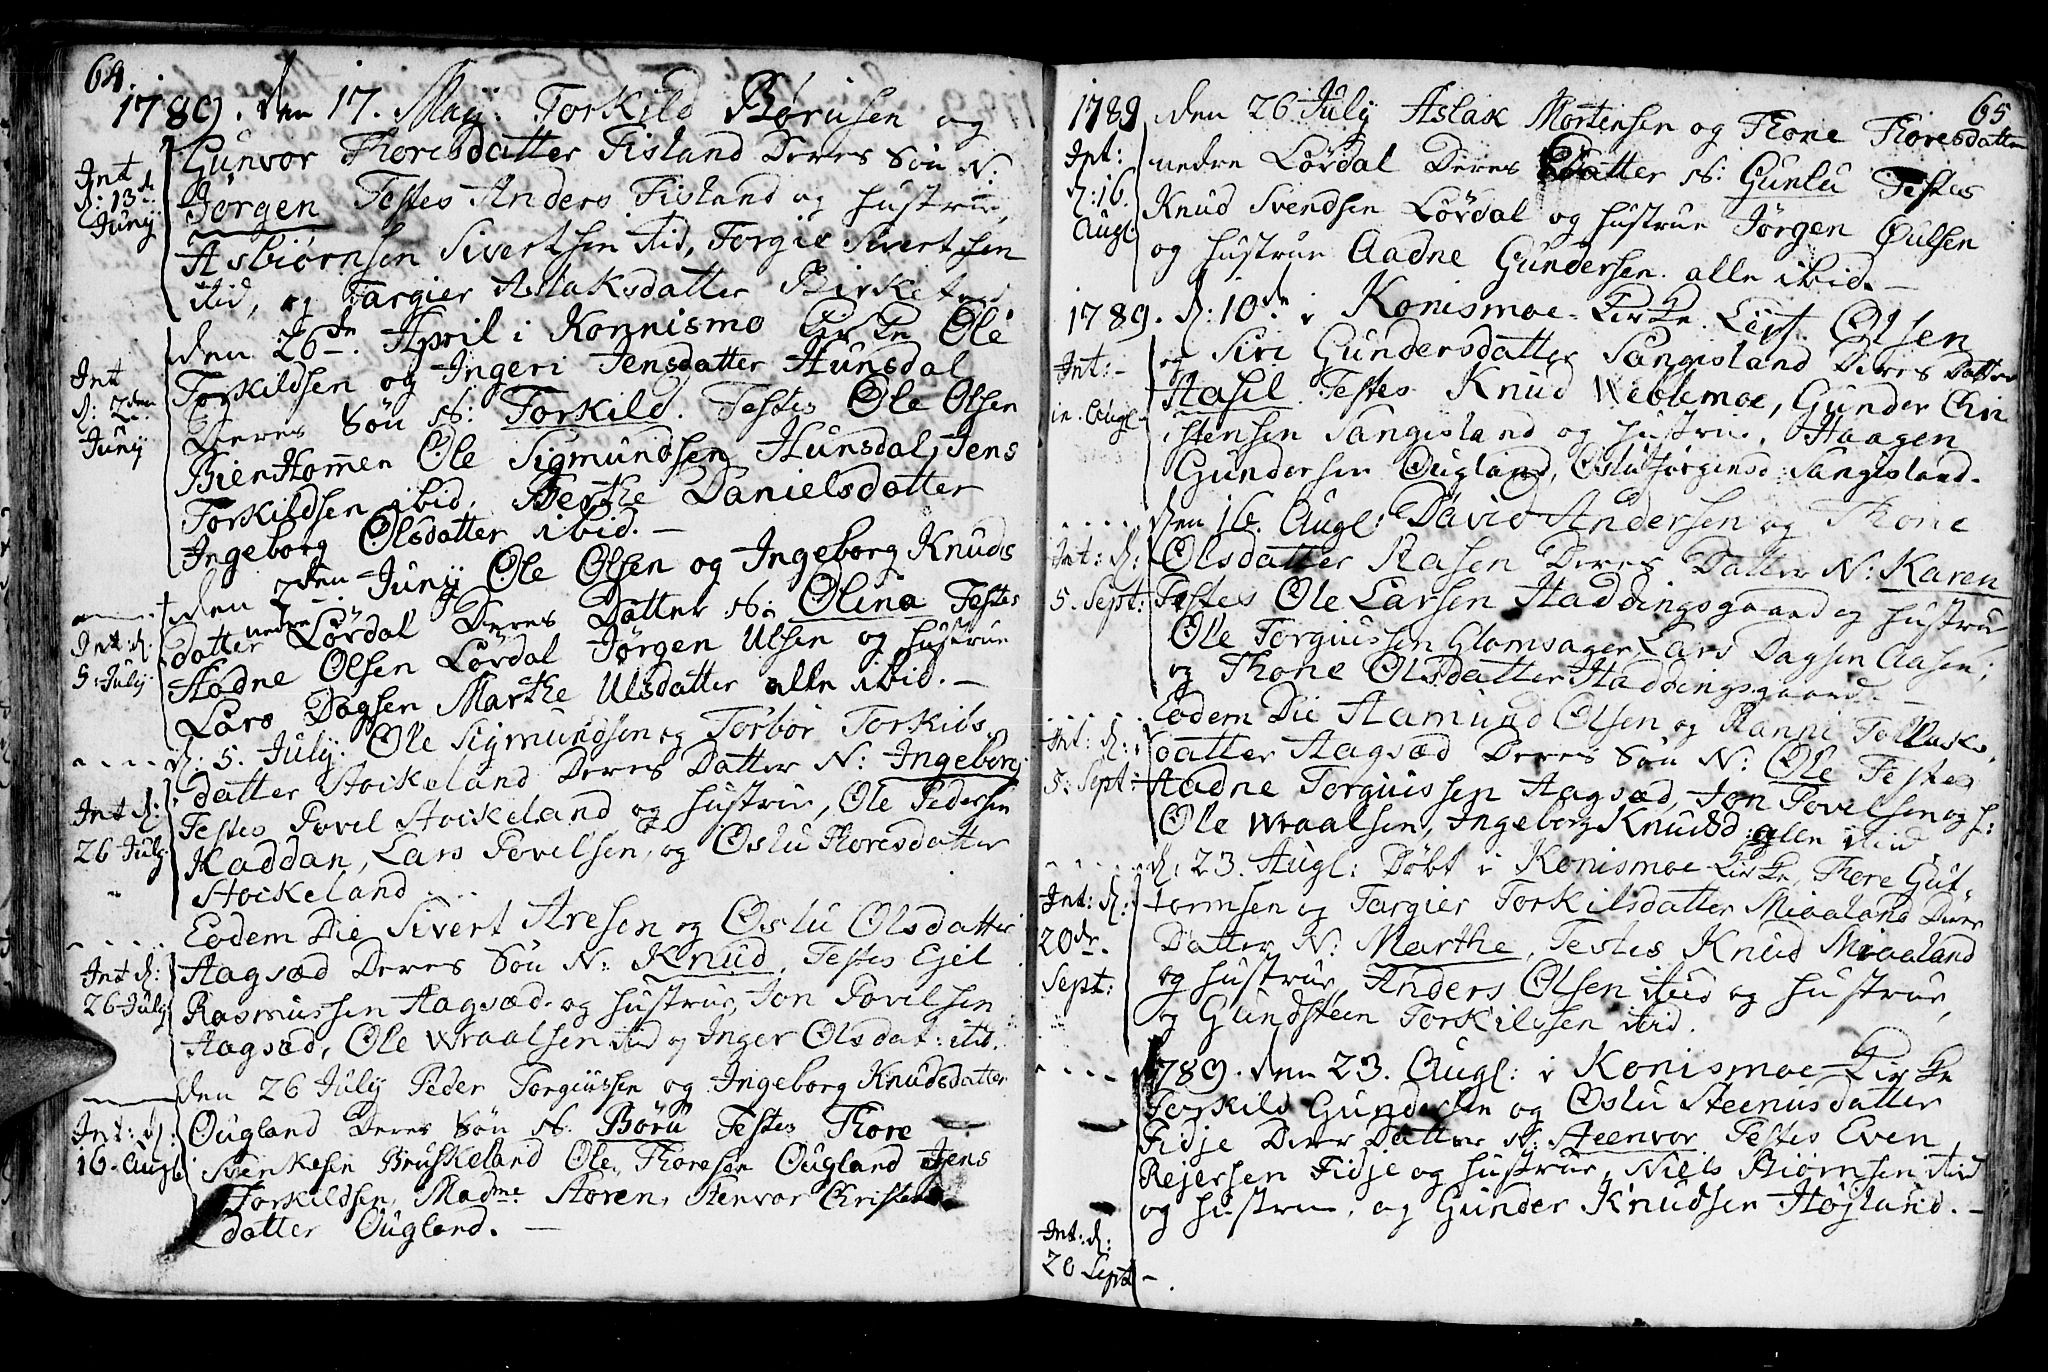 64.
1789. den 17. Maij. Torkild Børusen og
Gunvor Thoresdatter Fisland Deres Søn N:
Int
d: 13de
Juny
Jørgen Testes Anders Fisland og Hustrue,
Asbiørnsen Sivertsen ibid, Torgie Sivertsen
ibid, og Targier Aslaksdatter Birkeland
den 26de April i Konnismo Kirke Ole
Torkildsen og Ingeri Jensdatter Hunsdal
Int
d: 7den
Juny
Deres Søn N: Torkild. Testes Ole Olsen
BienHommen Ole Sigmundsen Hunsdal, Jens
Torkildsen ibid. Berthe Danielsdatter
Ingeborg Olsdatter ibid. —
den 7den Juny Ole Olsen og Ingeborg Knuds
datter nedre Lördal Deres Datter N: Olina Testes
Int: d:
5 July
Aadne Olsen Lördal Jørgen Ulsen og Hustrue
Lars Dagsen Marthe Ulsdatter alle ibid. —
d. 5. July. Ole Sigmundsen og Torbor Torkilds
datter Stockeland Deres Datter N: Ingeborg
Int d:
26 July
Testes Povel Stockeland og Hustrue, Ole Pedersen
Kaddan, Lars Povelsen, og Oslu Thoresdatter
Stockeland
Eodem Die Sivert Aresen og Oslu Olsdatter
Int d:
26 July
Aagsæd Deres Søn N: Knud, Testes Ejel
Rasmussen Aagsæd og Hustrue, Jon Povelsen
Aagsæd, Ole Wraalsen ibid og Inger Olsdat: ibid.
den 26 July Peder Torgiussen og Ingeborg Knudsdatter
Int: d:
16 Augl
Ougland Deres Søn N. Børü Testes Thore
Svenkesen Bruskeland Ole Thoresøn Ougland Jens
Torkildsen, Madme Storen, Stenvor Christens
datter Ougland. —
65
1789 den 26 July Aslak Mortensen og Thone Thoresdatter
Int:
d: 16.
Augl:
nedre Lördal Deres Datter N: Gunlu Testes
Knud Svendsen Lördal og Hustrue Jörgen Oulsen
og Hustrue Aadne Gundersen alle ibid. —
1789. d: 10de i Konismoe Kirke. Olsen
og Siri Gundersdatter Sangisland Deres Datter
Int: -
in Augl.
Aasil Testes Knud Weblemoe, Gunder Chri
stensen Sangisland og Hustrue, Haagen
Gundersen Ougland, Oslu Jørgensd: Sangisland.
den 16. Augl: David Andersen og Thone
Int: d:
5. Sept:
Olsdatter Aasen Deres Datter N: Karen
Testes Ole Larsen Haddingsgaard og Hustrue
Ole Torgiussen Glomsager Lars Dagsen Aasen;
og Thone Olsdatter Haddingsgaard.
Eodem Die Aamund Olsen og Ranni Tollaks
Int: d:
5: Sept:
datter Aagsæd Deres Søn N: Ole Testes
Aadne Torguissen Aagsæd, Jon Povelsen og H:
Ole Wraalsen, Ingeborg Knudsd: alle ibid.
d: 23. Augl: Døbt i Konismoe Kirke, Thore Gut-
Int: d:
20de
Sept:
tormsen og Targier Torkilsdatter Miaaland Deres
Datter N: Marthe, Testes Knud Miaaland
og Hustrue, Anders Olsen ibid og Hustrue,
og Gundsteen Torkilssen ibid.
1789. den 23. Augl: i Konismoe Kirke
Torkild Gundersen og Oslu Steenusdatter
Fidje Deres Datter N: Steenvor Testes Even
Rejersen Fidje og Hustrue, Niels Biörnsen ibid
og Hustrue, og Gunder Knudsen Højland. —
Int: d:
20 Sept